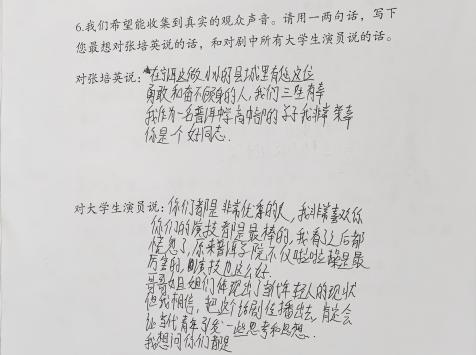 6.我们希望能收集到真实的观众声音。请用一两句话，写下
您最想对张培英说的话，和对剧中所有大学生演员说的话。
对张培英说：在洱这做小小的县城里有您这位
勇敢和奋不顾身的人，我们三生有幸
我作为一名普洱中学高中部的学子我非常荣幸
你是个好同志.
对大学生演员说：你们都是非常优秀的人，我非常喜欢你
你们的演技都是最棒的，我看了之后都
惊忽了，原来普洱学院不仅啦啦操是最
厉害的，演技也这么好.
哥哥姐姐们体现出了当代年轻人的现状
但我相信，把这个话剧往播出去，肯定会
让当代青年引发一些思考和思想.
我想问你们都是